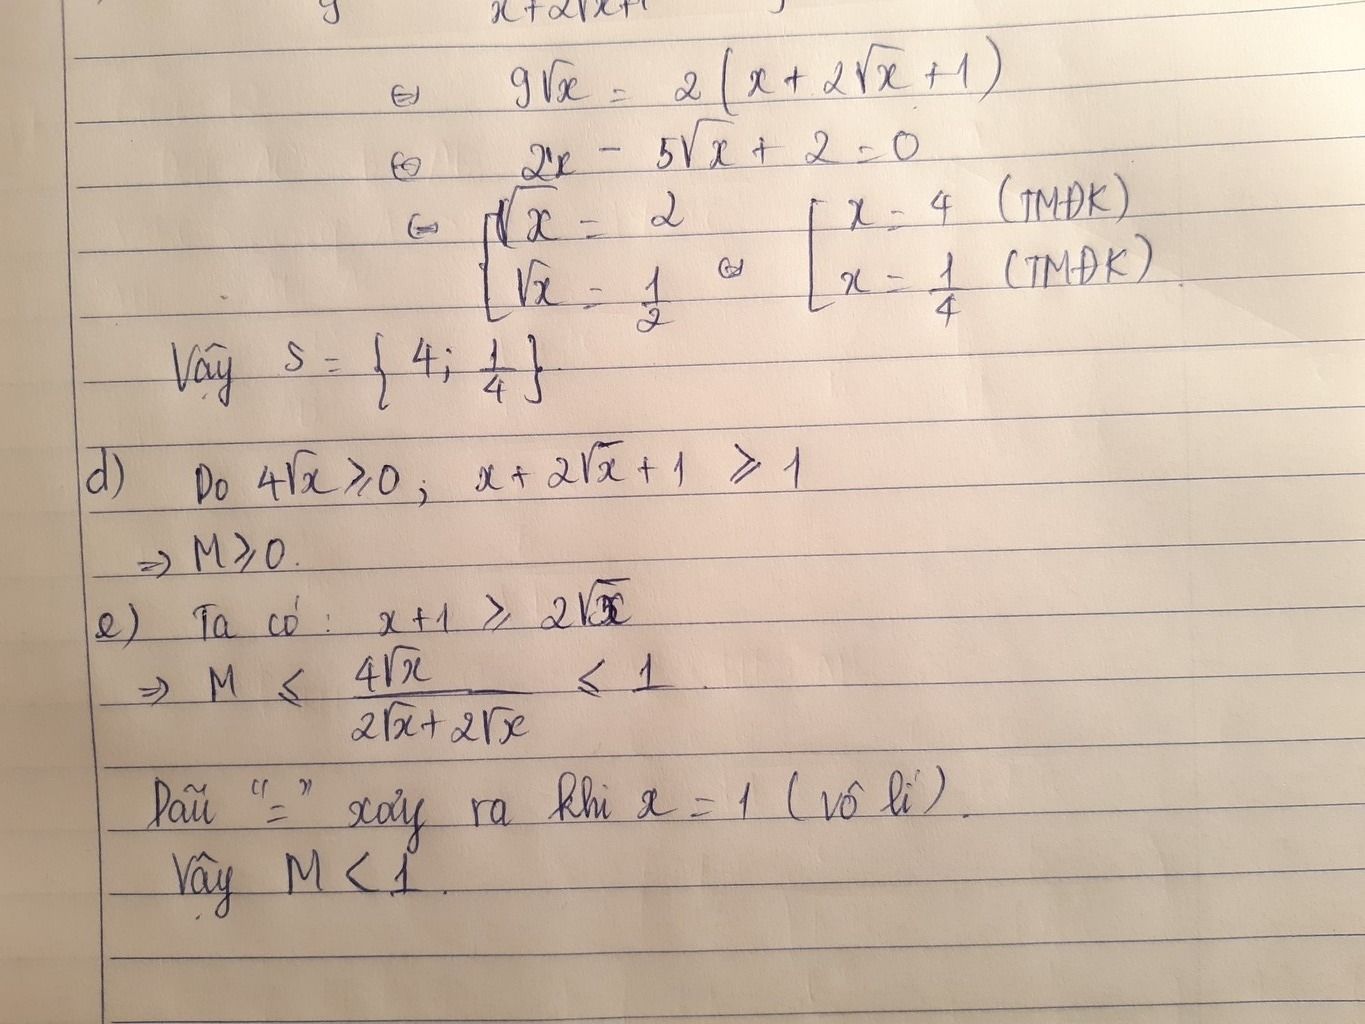 x+2√x+1
⇔ 9√x = 2(x + 2√x + 1)
⇔ 2x - 5√x + 2 = 0
⇔ [ √x = 2 [ x = 4 (TMĐK)
√x = 1/2 ⇔ x = 1/4 (TMĐK)
Vậy S = { 4; 1/4 }
d) Do 4√x ≥ 0; x + 2√x + 1 ≥ 1
⇒ M ≥ 0.
e) Ta có: x+1 ≥ 2√x
⇒ M ≤ 4√x / (2√x + 2√x) ≤ 1.
Dấu "=" xảy ra khi x = 1 (vô lí).
Vậy M < 1.